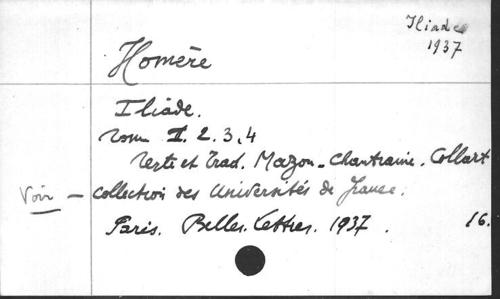 Iliade
1937
Homère
Iliade.
Tom I. 2. 3, 4
Texte et Trad. Mazon - Chantraine - Collart
Voir - Collection des Universités de France.
Paris. Belles. Lettres. 1937. 16.